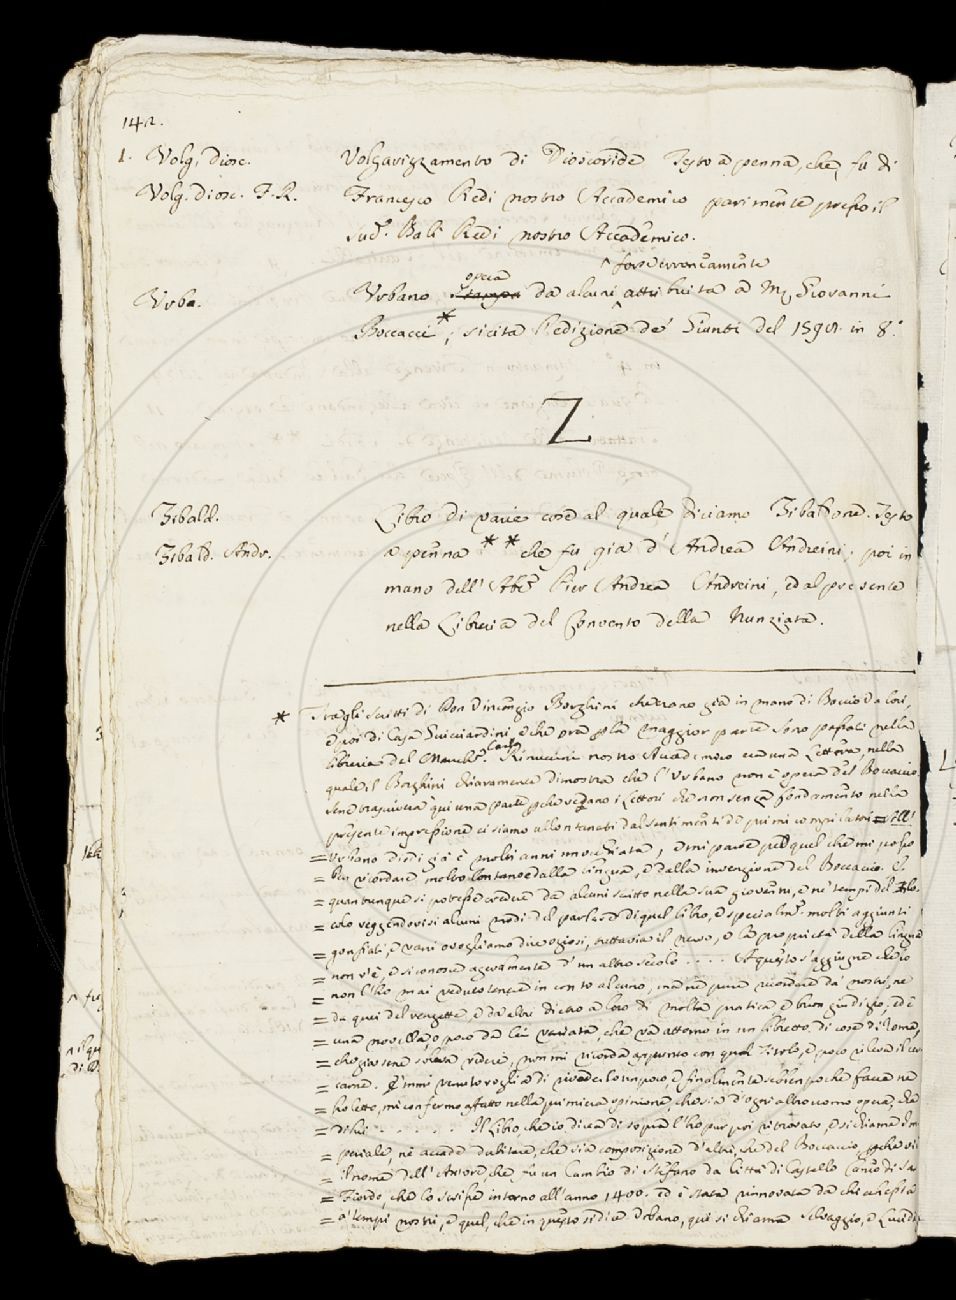 142.
1. Volg. Diosc. Volgarizzamento di Dioscoride Testo a penna, che fu di
Volg. diosc. F. R. Francesco Redi nostro Accademico parimente presso il
sud. Balì Redi nostro Accademico.
^ forse erroneamente
opera
Urba. Urbano stampa da alcuni ^ attribuita a M. Giovanni
Boccacci *; si cita l'edizione de' Giunti del 1598. in 8.°
Z
Zibald. Libro di varie cose al quale diciamo Zibaldone. Testo
Zibald. Andr. a penna ** che fu già d'Andrea Andreini, poi in
mano dell' Abe. Pier Andrea Andreini, ed al presente
nella Libreria del Convento della Nunziata.
* Tra gli scritti di Don Vincenzio Borghini che erano già in mano di Baccio Valori,
e poi di Casa Guicciardini, e che ora p la maggior parte sono passati nella
Carlo
libreria del March. Rinuccini nostro Accademico evvi una Lettera, nella
quale il Borghini chiaramente dimostra che l'Urbano non è opera del Boccaccio.
Sene trascriverà qui una parte pche vedano i Lettori che non senza fondamento nella
presente impressione ci siamo allontanati dal sentimento de' primi compilatori = Sell'
= Urbano di già è molti anni
= ben ricordare molto lontano e dalla lingua, e dalla invenzione del Boccaccio. E
= quantunque si potesse credere da alcuni scritto nella sua gioventù, e ne' tempi del Filo-
= colo veggendovisi alcuni modi del parlare di quel libro, e specialm.te molti aggiunti
= gonfiati, e vani o vogliamo dire oziosi, tuttavia il nervo, e la proprietà della lingua
= non v'è, e si conosce agevolmente d'un altro secolo . . . . A questo s'aggiugne che io
= non l'ho mai veduto tenere in conto alcuno, nè pure ricordare da' nostri, nè
= da quei del e da altri dietro a loro di molta pratica e buon giudizio, ed è
= una novella, o poco da lei variata, che va attorno in un libretto, di cose di Roma,
= che già sene soleva ridere, non mi ricorda appunto con qual Titolo, e poco rileva il cer-
= carne. E' mmi venuto voglia di rivederlo un poco, e finalmente sebben poche facce ne
= ho letto, mi confermo affatto nella primiera opinione, che sia d'ogni altro uomo opera, che
= di lui . . . . . . Il Libro, che io diceva di sopra l'ho pur poi ritrovato, e si chiama Im-
= periale, nè accade dubitare, che sia composizione d'altri, che del Boccaccio, pche vi
= è il nome dell' Autore, che fu un Cambio di Stefano da Città di Castello
= che lo scrisse intorno all'anno 1400. ed è stata rinnovata da chi che sia
= a' tempi nostri, e quel, che in questo si dice Urbano, qui si chiama Selvaggio, e